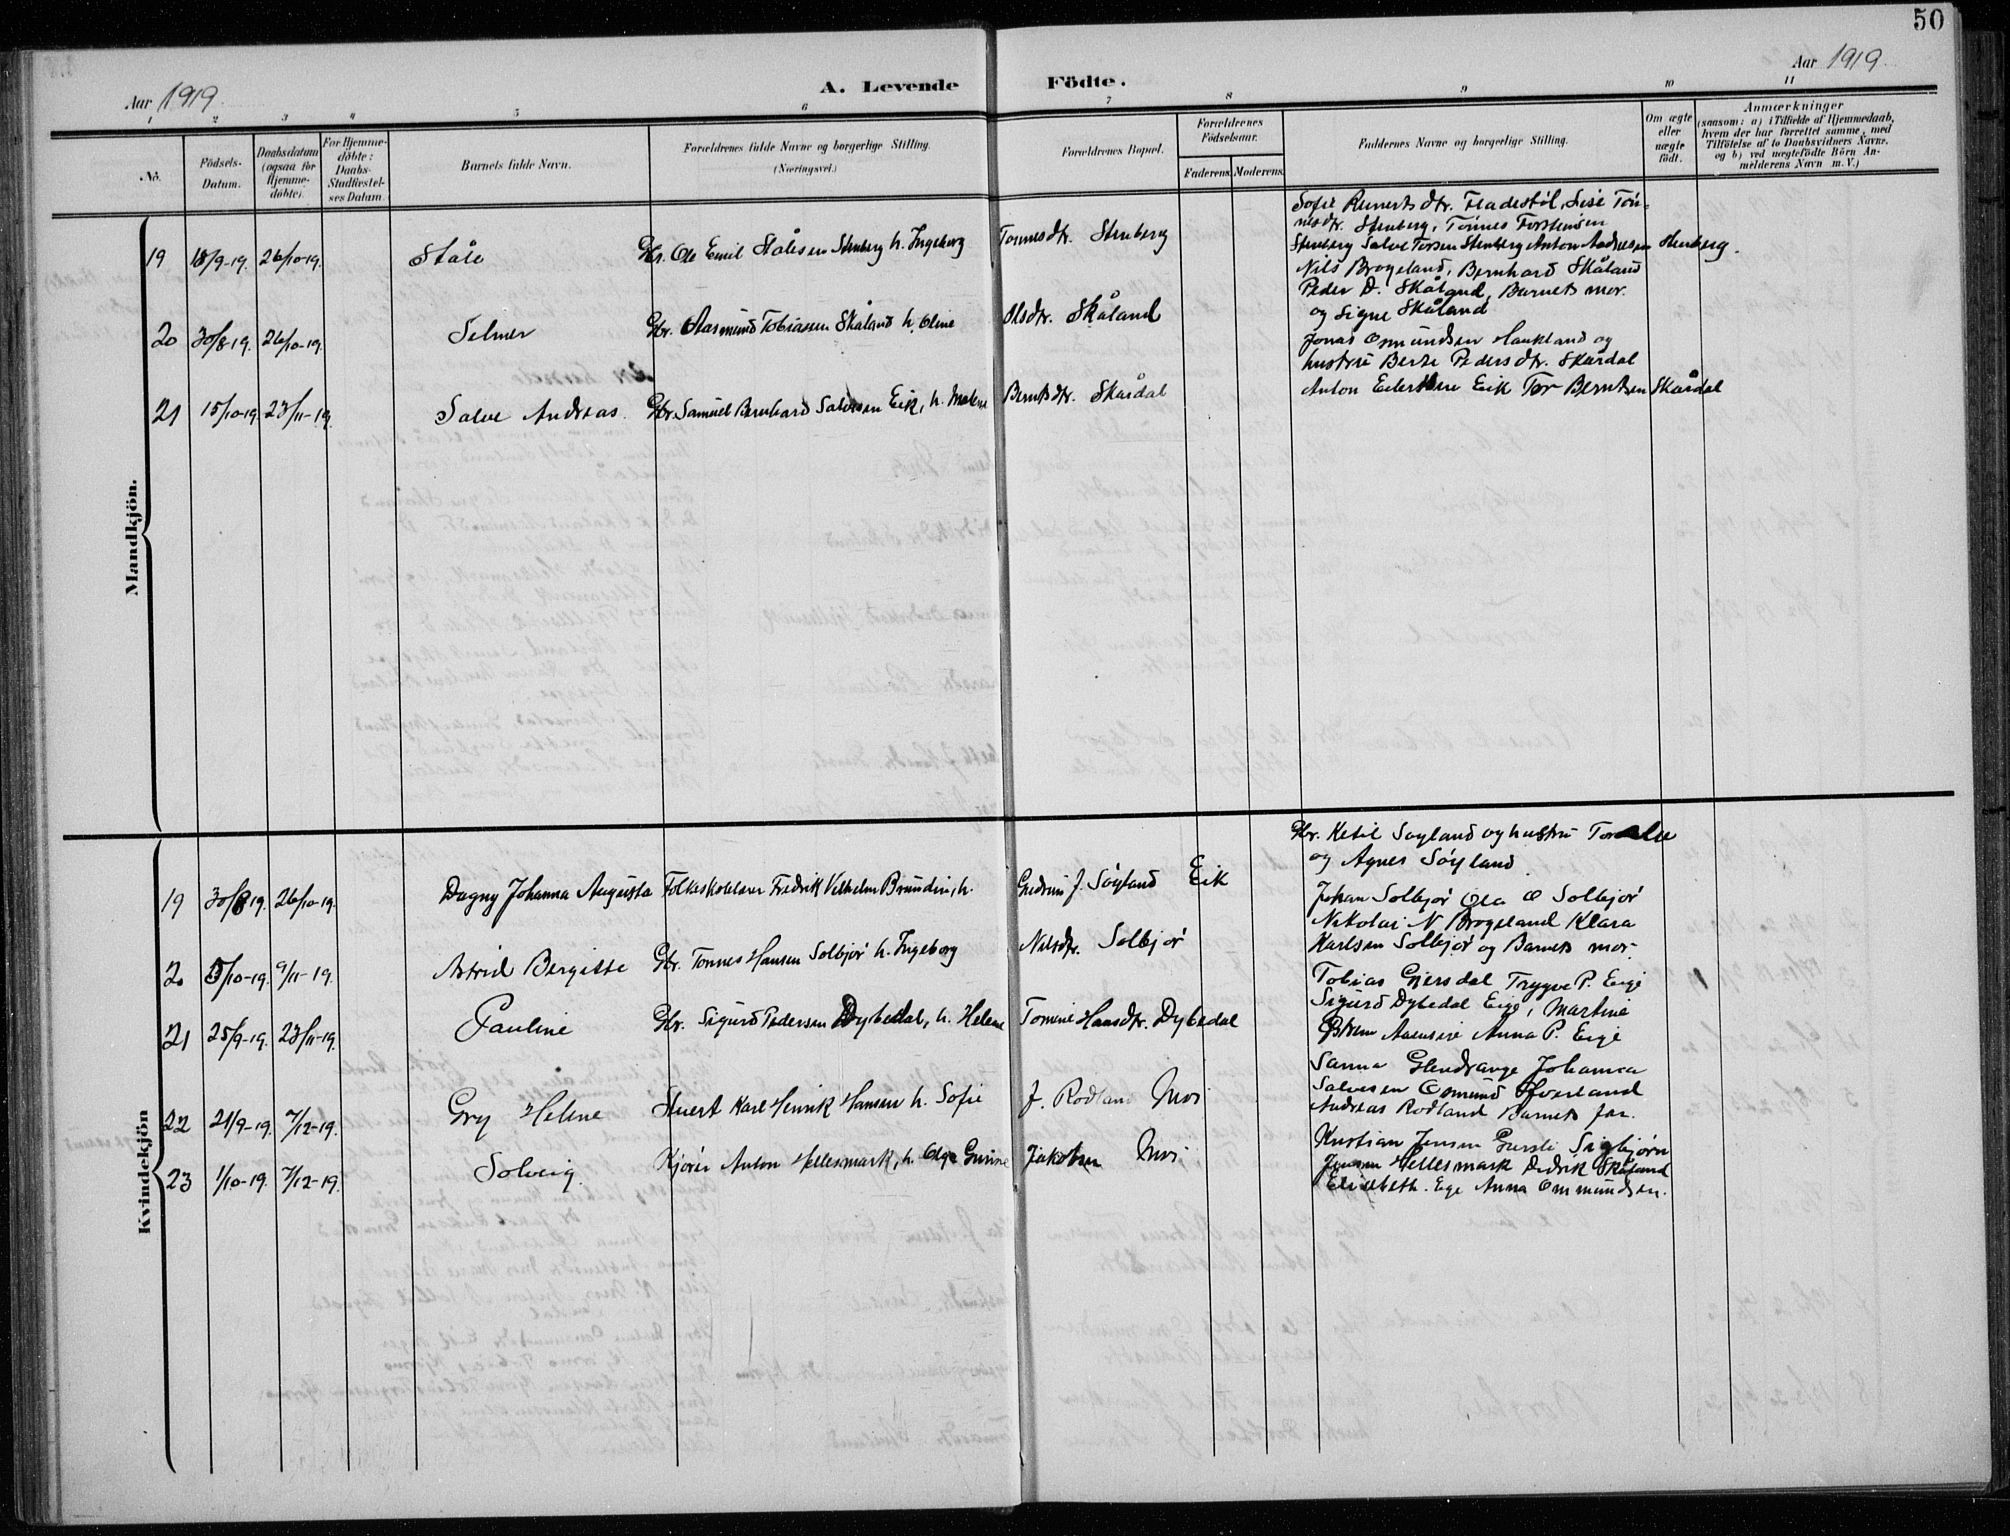 50
Aar 1919. A. Levende Födte. Aar 1919
1 2 3 4 5 6 7 8 9 10 11
No. Födsels-Datum. Daabsdatum (ogsaa for Hjemme-döbte). For Hjemme-döbte: Daabs-Stadfæstel-ses Datum. Barnets fulde Navn. Forældrenes fulde Navne og borgerlige Stilling. (Næringsvei.) Forældrenes Bopæl. Forældrenes Födselsaar. Faderens. Moderens. Faddernes Navne og borgerlige Stilling. Om ægte eller uægte födt. Anmærkninger (saasom: a) i Tilfælde af Hjemmedaab, hvem der har forrettet samme, med Tilföielse af to Daabsvidners Navne, og b) ved uægtefödte Börn An-melderens Navn m. V.)
Mandkjön.
Sofie Reinertsdtr. Fladestöl, Lise Tön-
nesdtr. Stenberg, Tönnes Torsteinsen
19 18/9-19. 26/10-19. Ståle Gbr. Ole Emil Stålesen Stenberg h. Ingeborg Tonnesdtr. Stenberg Stenberg Salve Torsen Stenberg Anton Andresen Stenberg.
Nils Brogeland, Bernhard Skåland
Peder D. Skåland, Barnets mor.
og Signe Skåland
20 30/8-19. 26/10-19. Selmer Gbr. Aasmund Tobiassen Skåland h. Oline Olsdtr. Skåland
Jonas Osmundsen Haukland og
hustru Berte Pedersdtr. Skårdal
Anton Eilertsen Eik Tor Berntsen Skårdal
21 15/10-19 23/11-19. Salve Andreas. Gbr. Samuel Bernhard Salvesen Eik, h. Malene Berntsdtr. Skårdal
Kvindekjön
Gbr. Ketil Söyland og hustru
og Agnes Söyland
19 30/8 19. 26/10-19. Dagny Johanna Augusta Folkeskolelærer Fredrik Vilhelm Brundin, h. Gudrun J. Söyland Eik
Johan Solbjör Ola O Solbjör
Nikolai N Brogeland Klara
Karlsen Solbjör og Barnets mor.
20 5/10-19. 9/11-19. Astrid Bergitte Gbr. Tonnes Hansen Solbjör h. Ingeborg Nilsdtr. Solbjör
Tobias Gjersdal Trygve P. Eige
Sigurd Dybedal Eige, Martine
21 25/9-19. 23/11-19. Pauline Gbr. Sigurd Pedersen Dybedal, h. Helene Tomine Hansdtr. Dybedal
Anna P. Eige
Sanna Glendrange Johanna
Salvesen Osmund Hoverland
Andreas Rodland Barnets far.
22 21/9-19. 7/12-19. Gry Helene Karl Henrik Hansen h. Sofie J. Rodland Moi
Kristian Jensen Sigbjörn
Jensen Hellesmark Didrik Skåland
Elisabeth Ege Anna Ommundsen.
23 1/10-19. 7/12-19. Solveig. Anton Hellesmark, h. Olga Gurine Jakobsen Moi